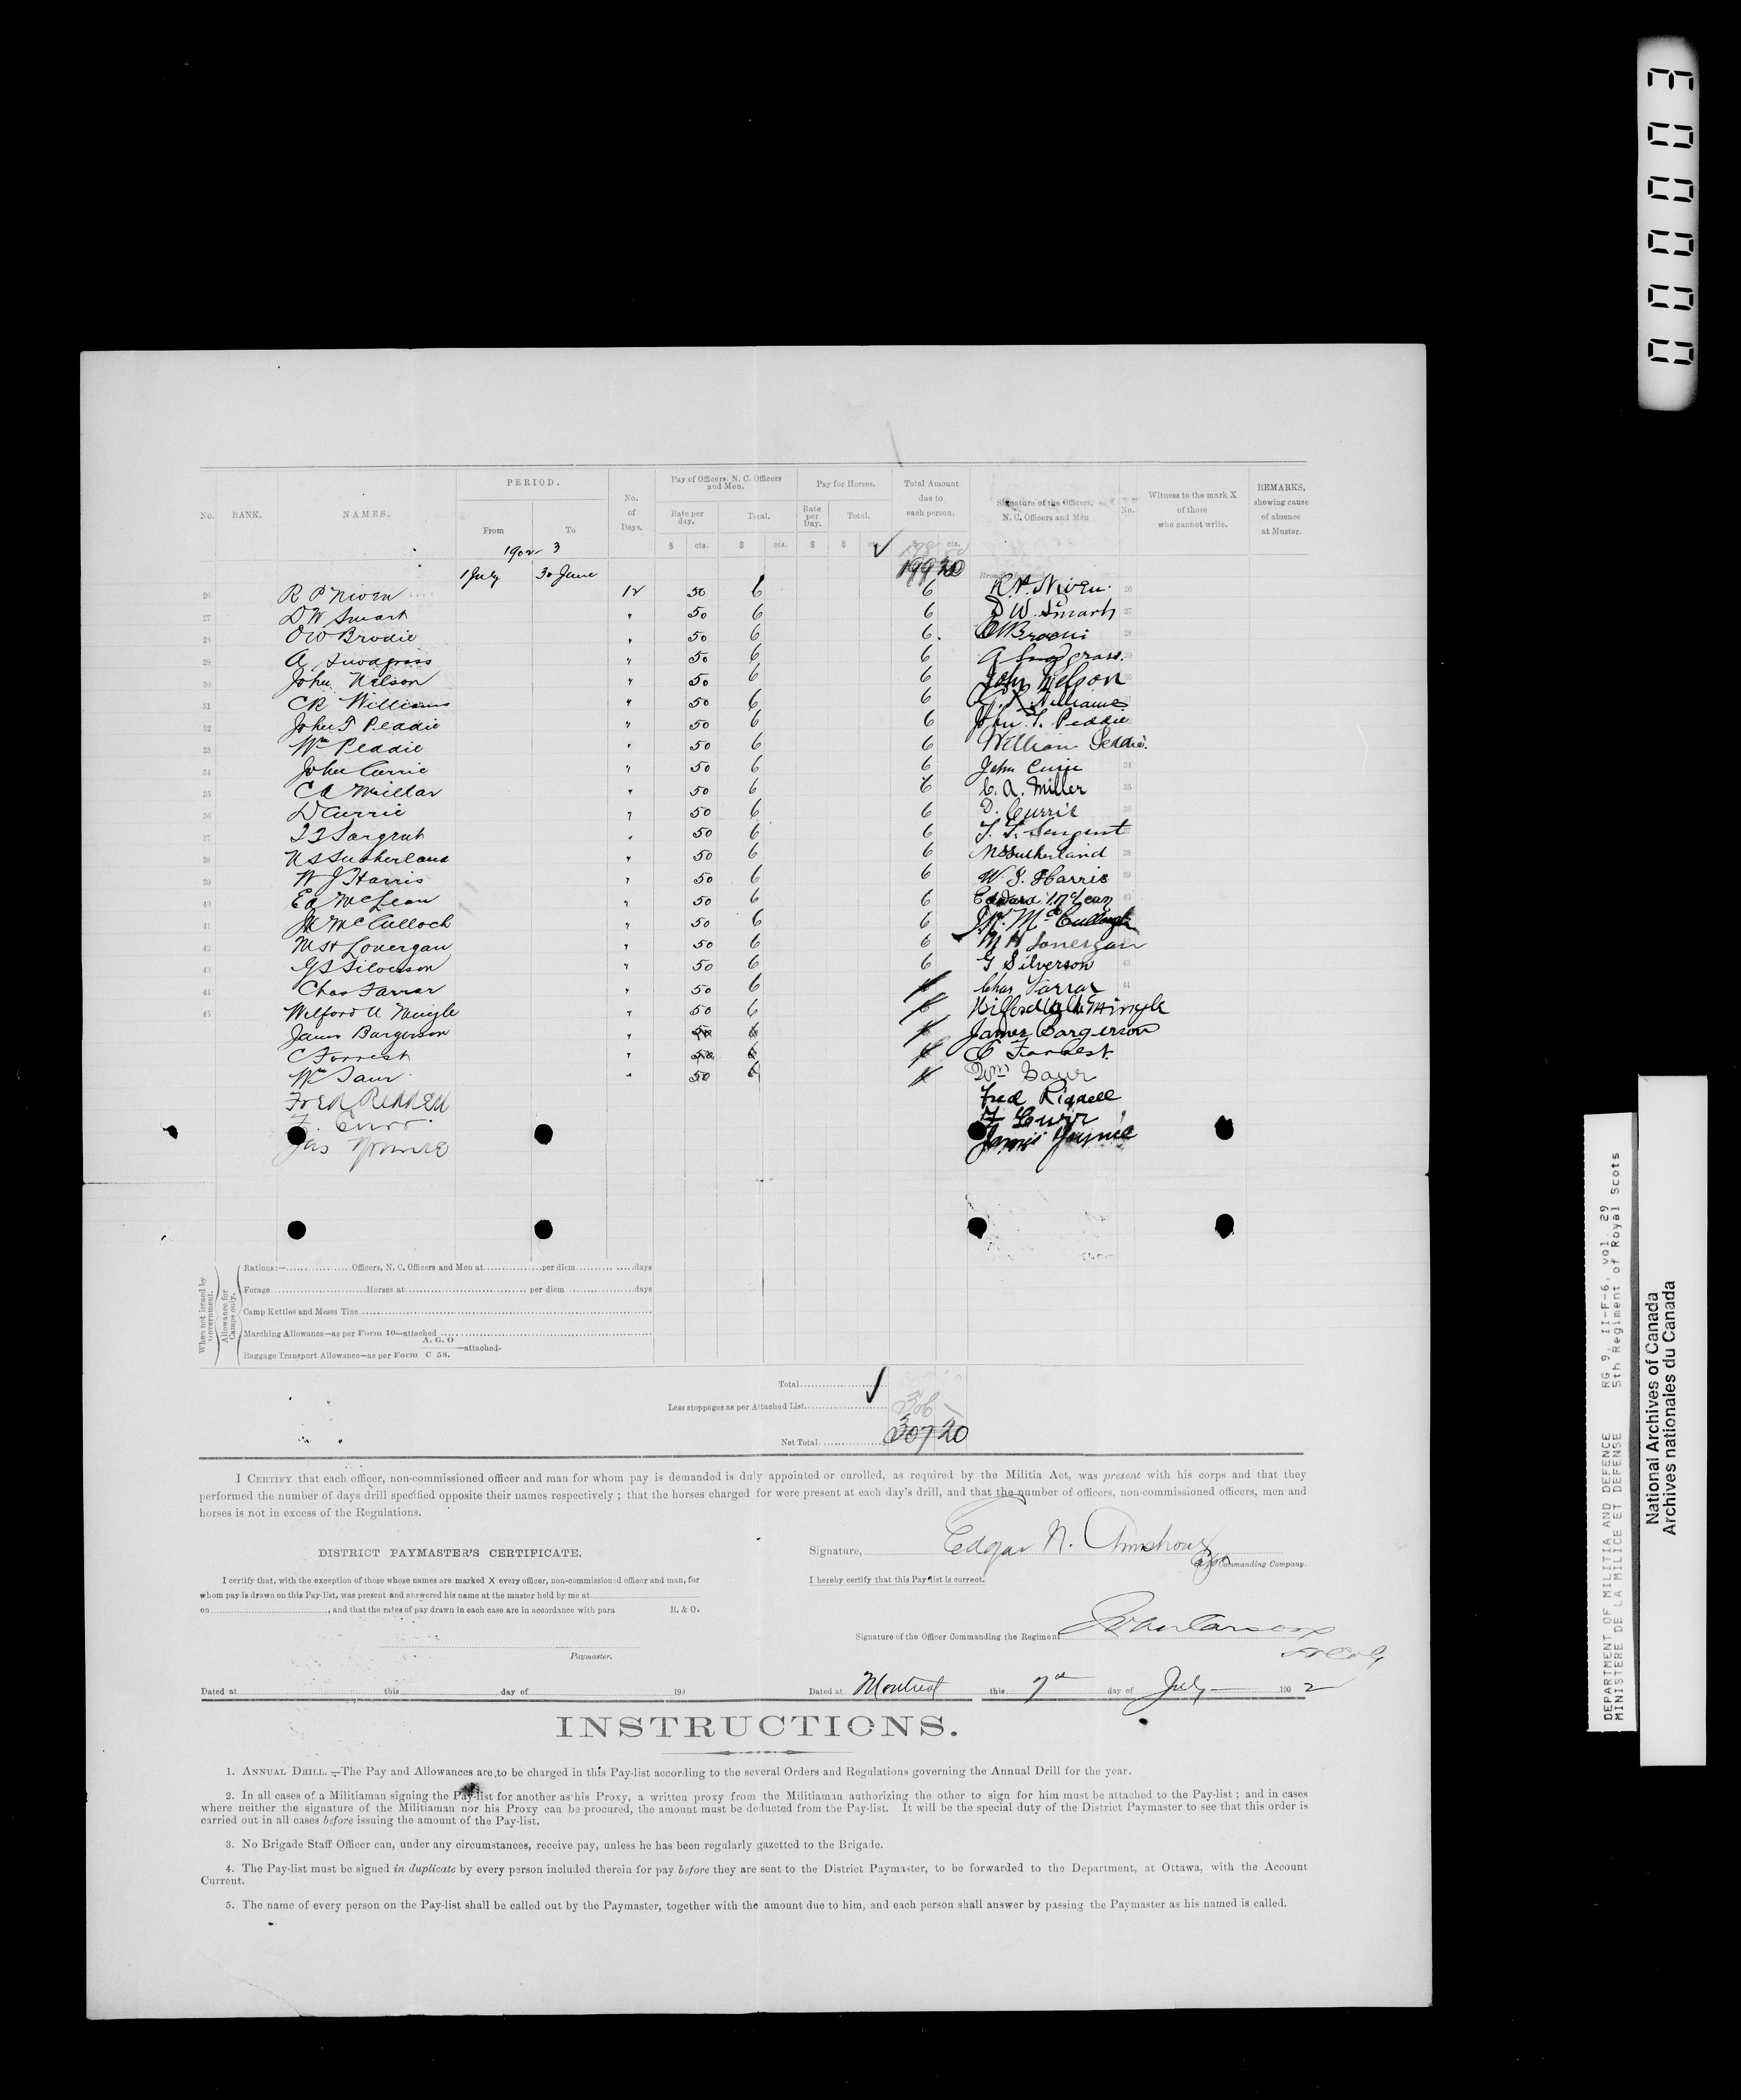 PERIOD.
Pay of Officers, N. C. Officers and Men.
Pay for Horses.
Total Amount due to each person.
Signature of the Officers, N. C. Officers and Men
No.
Witness to the mark X of those who cannot write.
REMARKS, showing cause of absence at Muster.
No. RANK. NAMES. From To No. of Days. Rate per day. Total. Rate per Day. Total.
$ cts. $ cts. $ $ cts. $ cts.
1902 3
1 July 30 June 199 20
26 R P Niven 12 50 6 6 R. P. Niven 26
27 D W Smart " 50 6 6 D W. Smart 27
28 O W Brodie " 50 6 6. 28
29 A Snodgrass " 50 6 6 A Snodgrass.
30 John Nelson " 50 6 6 John Nelson
31 C R Williams " 50 6 6 C. R. Williams
32 John T Peddie " 50 6 6 John T. Peddie
33 Wm Peddie " 50 6 6 William Peddie.
34 John Currie " 50 6 6 John Currie 34
35 C A Millar " 50 6 6 C. A. Miller 35
36 D Currie " 50 6 6 D. Currie 36
37 " 50 6 6 T. T. Sargent
38 N S Sutherland " 50 6 6 N S Sutherland 38
39 W J Harris " 50 6 6 W. J. Harris 39
40 Ed McLean " 50 6 6 Edward McLean 40
41 McCulloch " 50 6 6 McCullough
42 M H Lonergan " 50 6 6 M H Lonergan
43 G S Silverson " 50 6 6 G Silverson 43
44 Chas Farrar " 50 6 Chas Farrar 44
45 Wilford A Mingle " 50 6 Mingle
James Bargerson " 50 6 James Bargerson
C Forrest " 50 6 C Forrest
Wm " 50 6 Wm
Fred Riddell Fred Riddell
F. Curr F Curr
Jas James
When not issued by Government.
Allowance for Camps only.
Rations:— Officers, N. C. Officers and Men at per diem days
Forage Horses at per diem days
Camp Kettles and Moess Tins
Marching Allowance—as per Form 10—attached
Baggage Transport Allowance—as per Form A. G. O C 58. —attached-
Total
Less stoppages as per Attached List 306
Net Total 307 20
I CERTIFY that each officer, non-commissioned officer and man for whom pay is demanded is duly appointed or enrolled, as required by the Militia Act, was present with his corps and that they
performed the number of days drill specified opposite their names respectively ; that the horses charged for were present at each day's drill, and that the number of officers, non-commissioned officers, men and
horses is not in excess of the Regulations.
DISTRICT PAYMASTER'S CERTIFICATE.
Signature, Edgar N. Armstrong
Capt Commanding Company.
I certify that, with the exception of those whose names are marked X every officer, non-commissioned officer and man, for
whom pay is drawn on this Pay-list, was present and answered his name at the muster held by me at
on , and that the rates of pay drawn in each case are in accordance with para R. & O.
I hereby certify that this Pay list is correct.
Signature of the Officer Commanding the Regiment
Paymaster.
Dated at this day of 190
Dated at Montreal this 7th day of July 190 2
INSTRUCTIONS.
1. ANNUAL DRILL.—The Pay and Allowances are to be charged in this Pay-list according to the several Orders and Regulations governing the Annual Drill for the year.
2. In all cases of a Militiaman signing the Pay-list for another as his Proxy, a written proxy from the Militiaman authorizing the other to sign for him must be attached to the Pay-list ; and in cases
where neither the signature of the Militiaman nor his Proxy can be procured, the amount must be deducted from the Pay-list. It will be the special duty of the District Paymaster to see that this order is
carried out in all cases before issuing the amount of the Pay-list.
3. No Brigade Staff Officer can, under any circumstances, receive pay, unless he has been regularly gazetted to the Brigade.
4. The Pay-list must be signed in duplicate by every person included therein for pay before they are sent to the District Paymaster, to be forwarded to the Department, at Ottawa, with the Account
Current.
5. The name of every person on the Pay-list shall be called out by the Paymaster, together with the amount due to him, and each person shall answer by passing the Paymaster as his named is called.
000003
DEPARTMENT OF MILITIA AND DEFENCE RG 9, II-F-6, vol. 29
MINISTERE DE LA MILICE ET DEFENSE 5th Regiment of Royal Scots
National Archives of Canada
Archives nationales du Canada